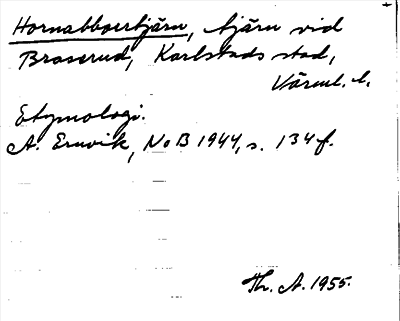 Hornabboertjärn, tjärn vid
Braserud, Karlstads stad,
Värml. l.
Etymologi.
A. Ernvik, NoB 1944, s. 134 f.
Th. A. 1955.